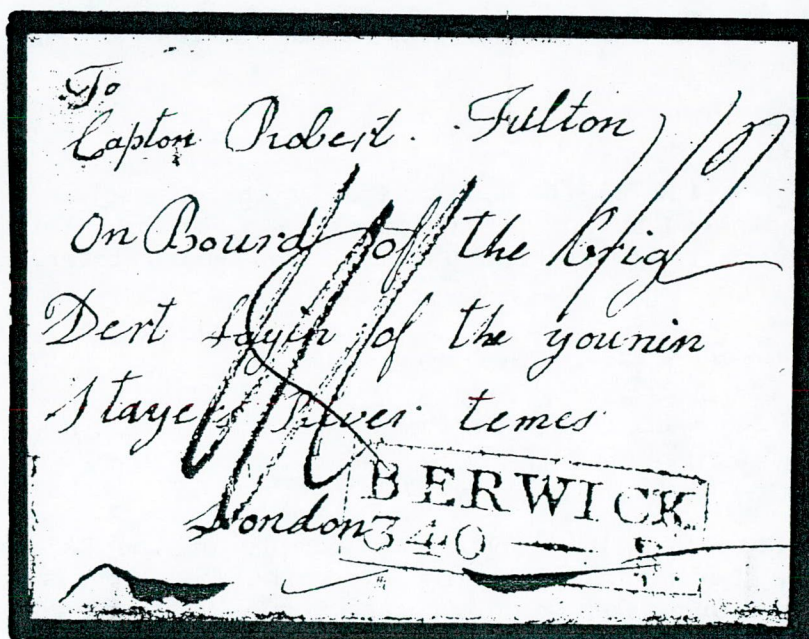 To
Capton Robert. Fulton
On Bourd of the brig
Dert layin of the younin
Stayers River temes
London
BERWICK
340 — E